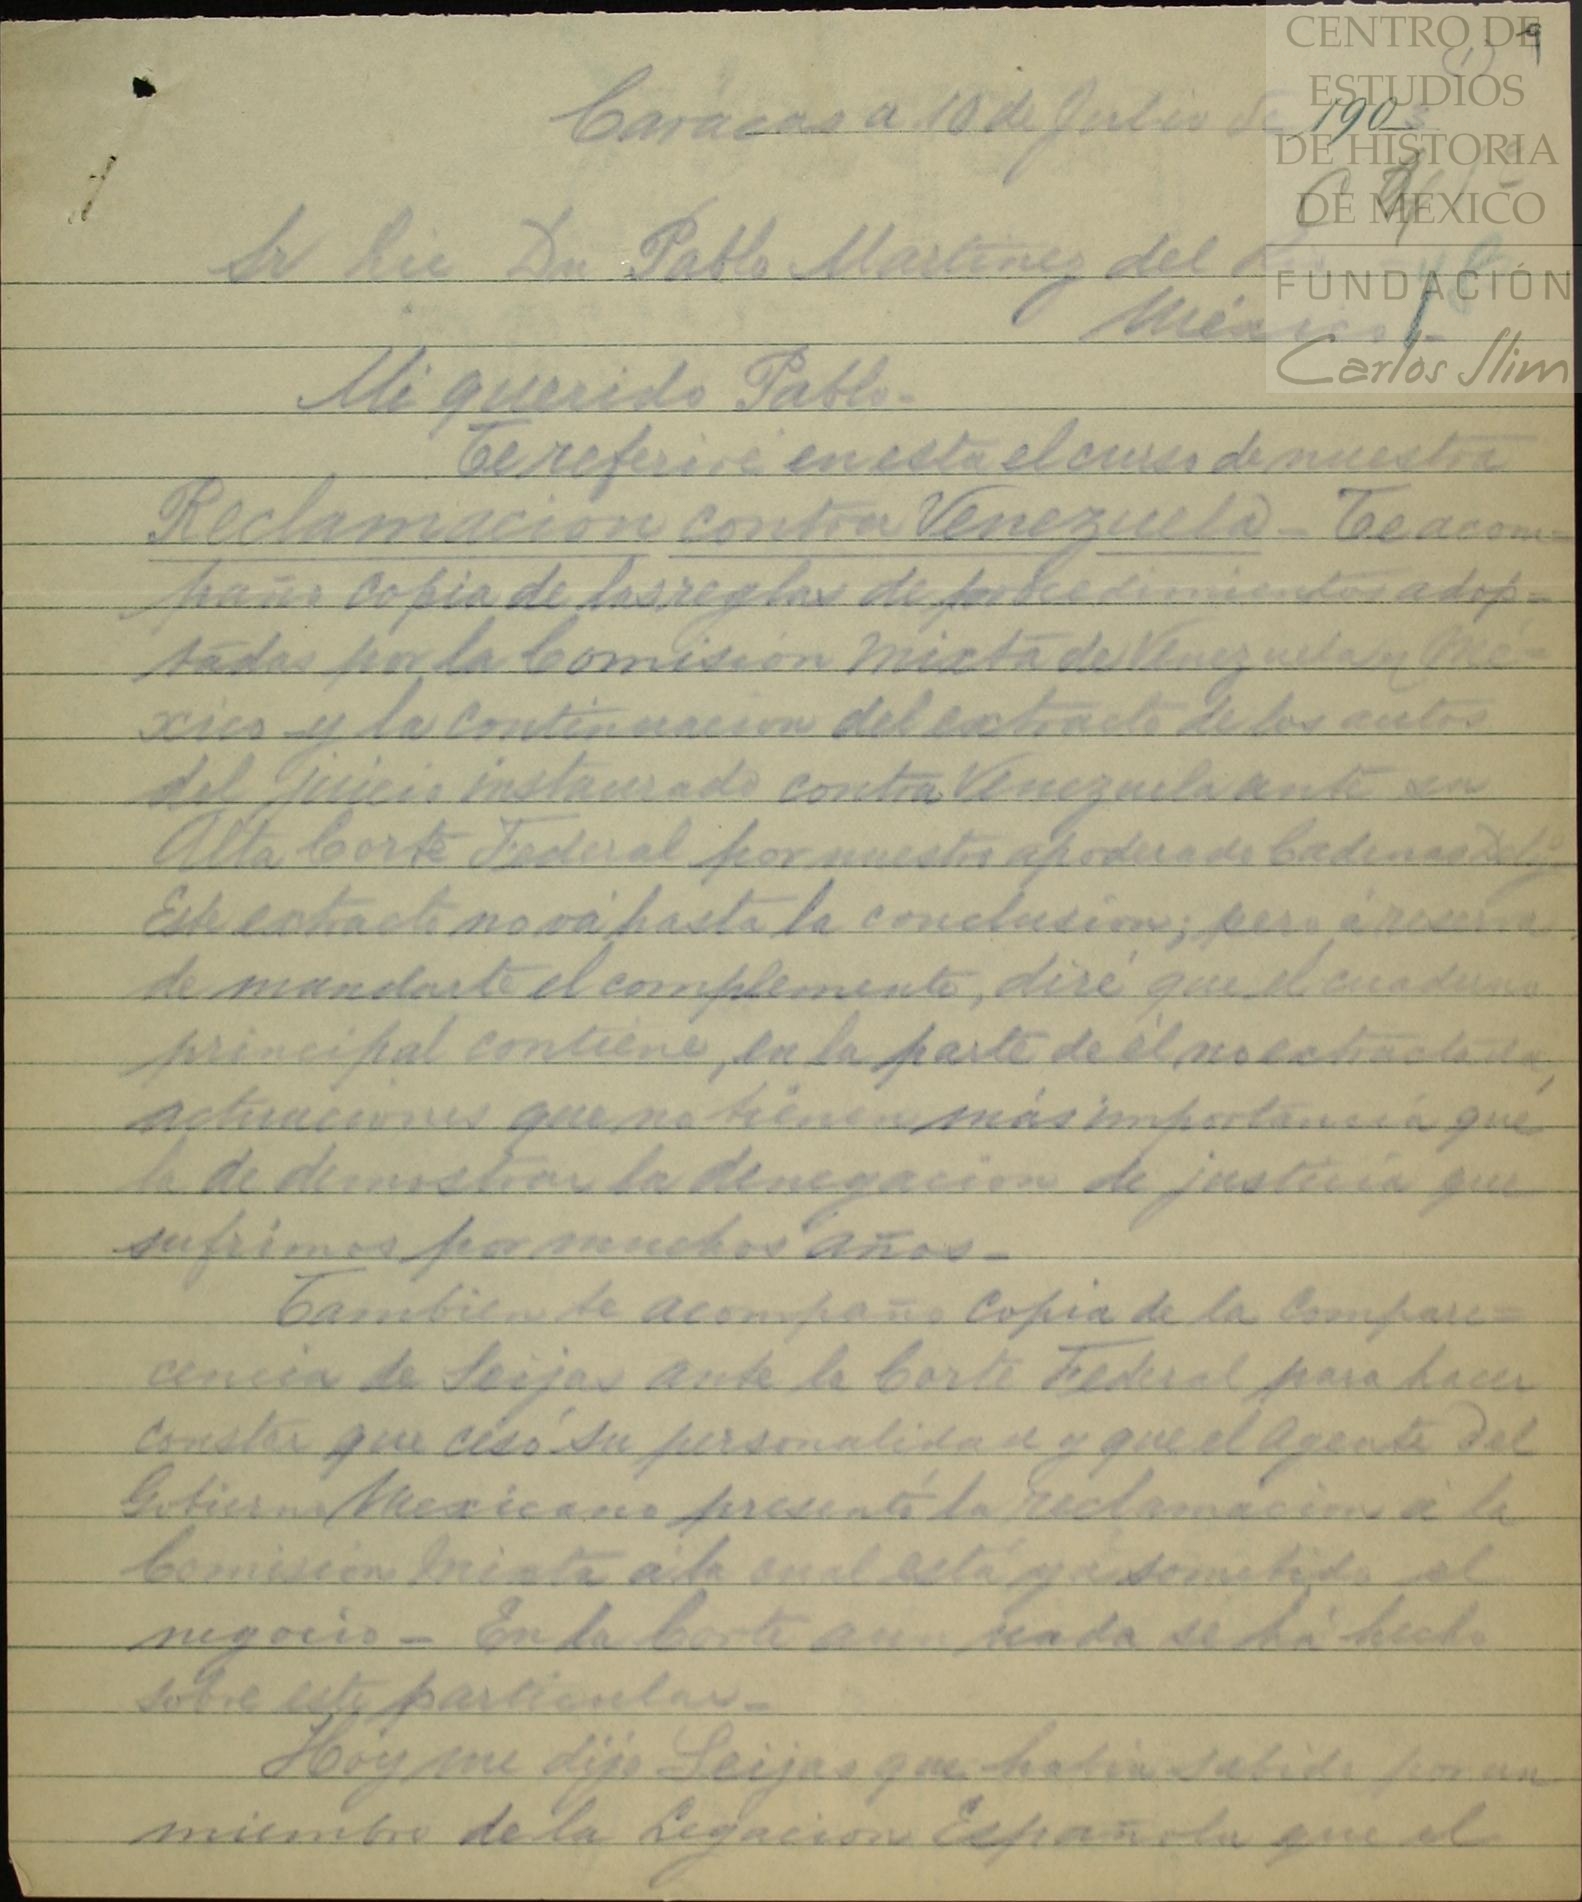 CENTRO DE
ESTUDIOS
DE HISTORIA
DE MEXICO
FUNDACIÓN
Carlos Slim
(1) 9
Caracas a 10 de Julio de 1903
Sr Lic Dn Pablo Martinez del Rio
México-
Mi querido Pablo-
Te referiré en esta el curso de nuestra
Reclamacion contra Venezuela- Te acom-
paño copia de las reglas de procedimientos adop-
tadas por la Comisión Mixta de Venezuela y Mé-
xico y la continuacion del extracto de los autos
del juicio instaurado contra Venezuela ante su
Alta Corte Federal por nuestro apoderado Cadenas Delg.
Este extracto no vá hasta la conclusion; pero á reserva
de mandarte el complemento, diré que el cuaderno
principal contiene, en la parte de él no extractada,
actuaciones que no tienen más importancia que
la de demostrar la denegacion de justicia que
sufrimos por muchos años-
Tambien te acompaño copia de la compare-
cencia de Seijas ante la Corte Federal para hacer
constar que cesó su personalidad y que el Agente del
Gobierno Mexicano presentó la reclamacion á la
Comision Mixta á la cual está ya sometido el
negocio- En la Corte aun nada se há hecho
sobre este particular-
Hoy me dijo Seijas que habia sabido por un
miembro de la Legacion Española que el